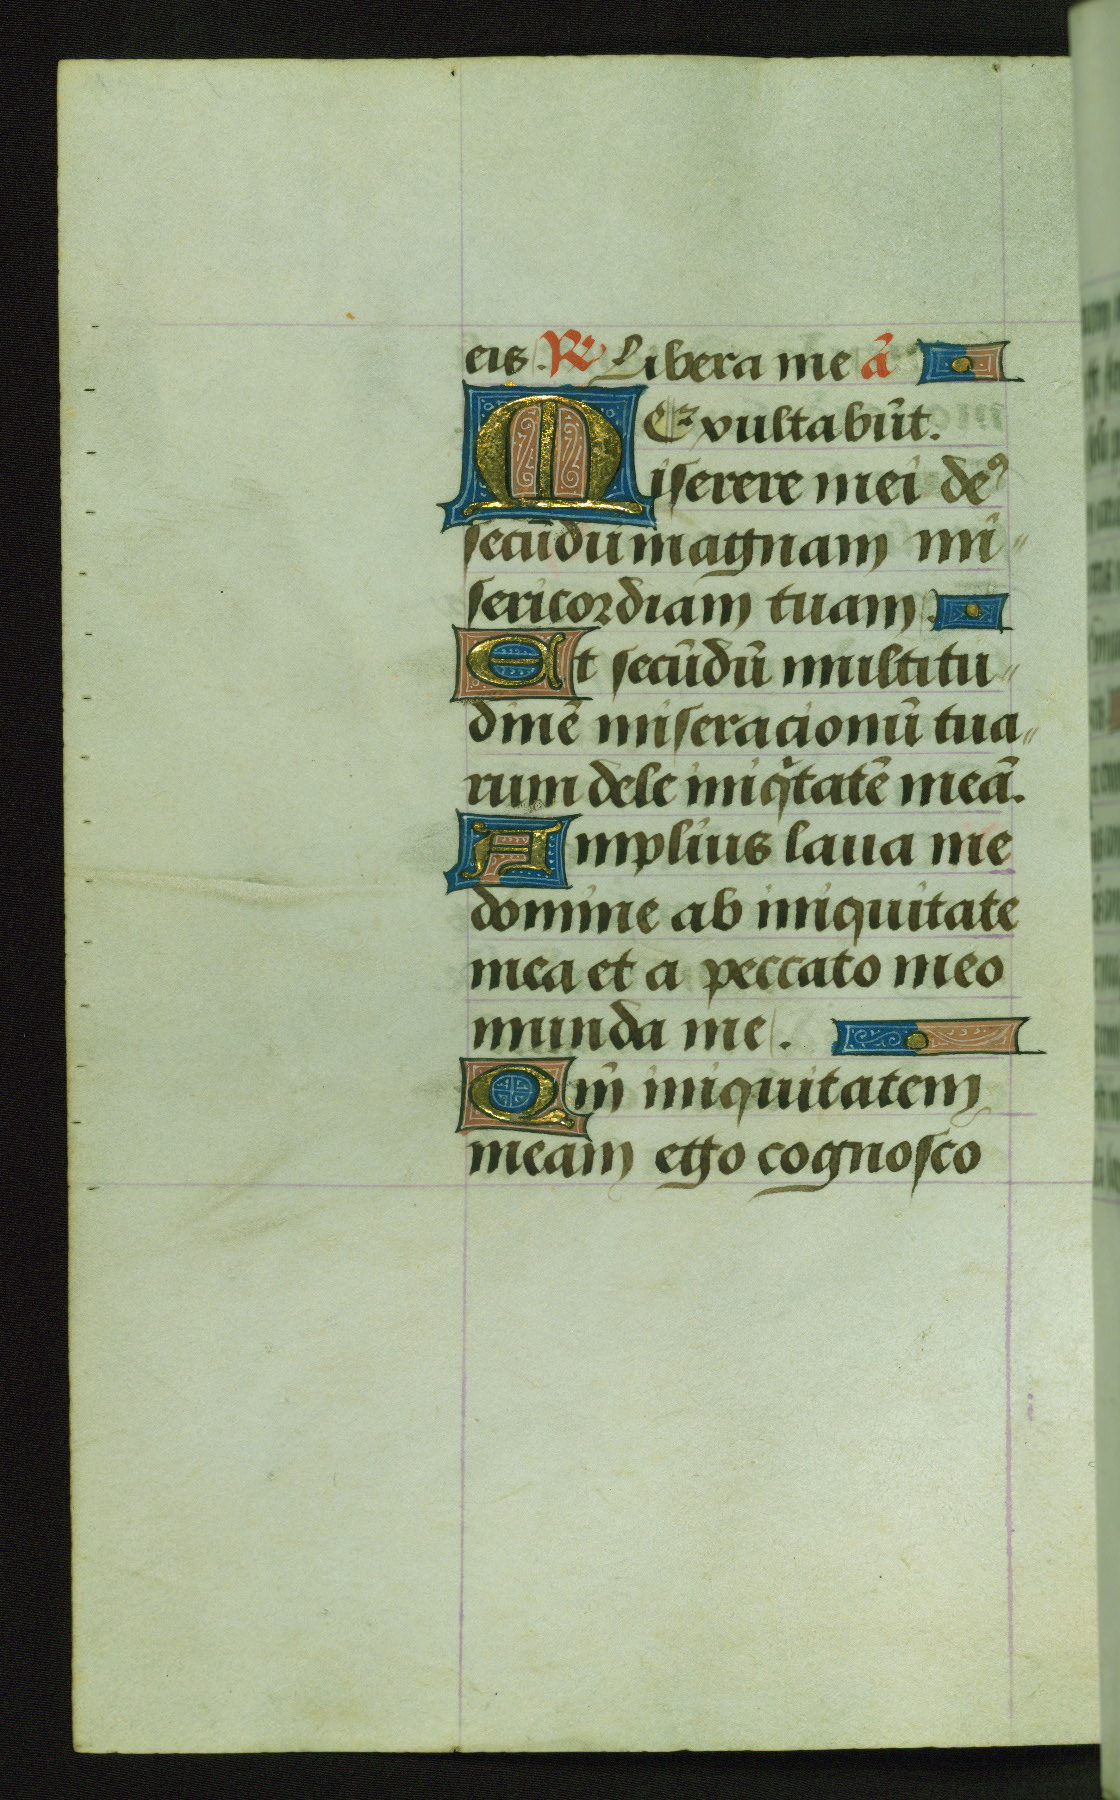 eis. R Libera me ā
Exultabūt.
Miserere mei deꝰ
secūdū magnam mi
sericordiam tuam.
Et secūdū multitu
dinē miseracionū tua
rum dele iniqͥtatē meā.
Amplius laua me
domine ab iniquitate
mea et a peccato meo
munda me.
Qm̄ iniquitatem
meam ego cognosco